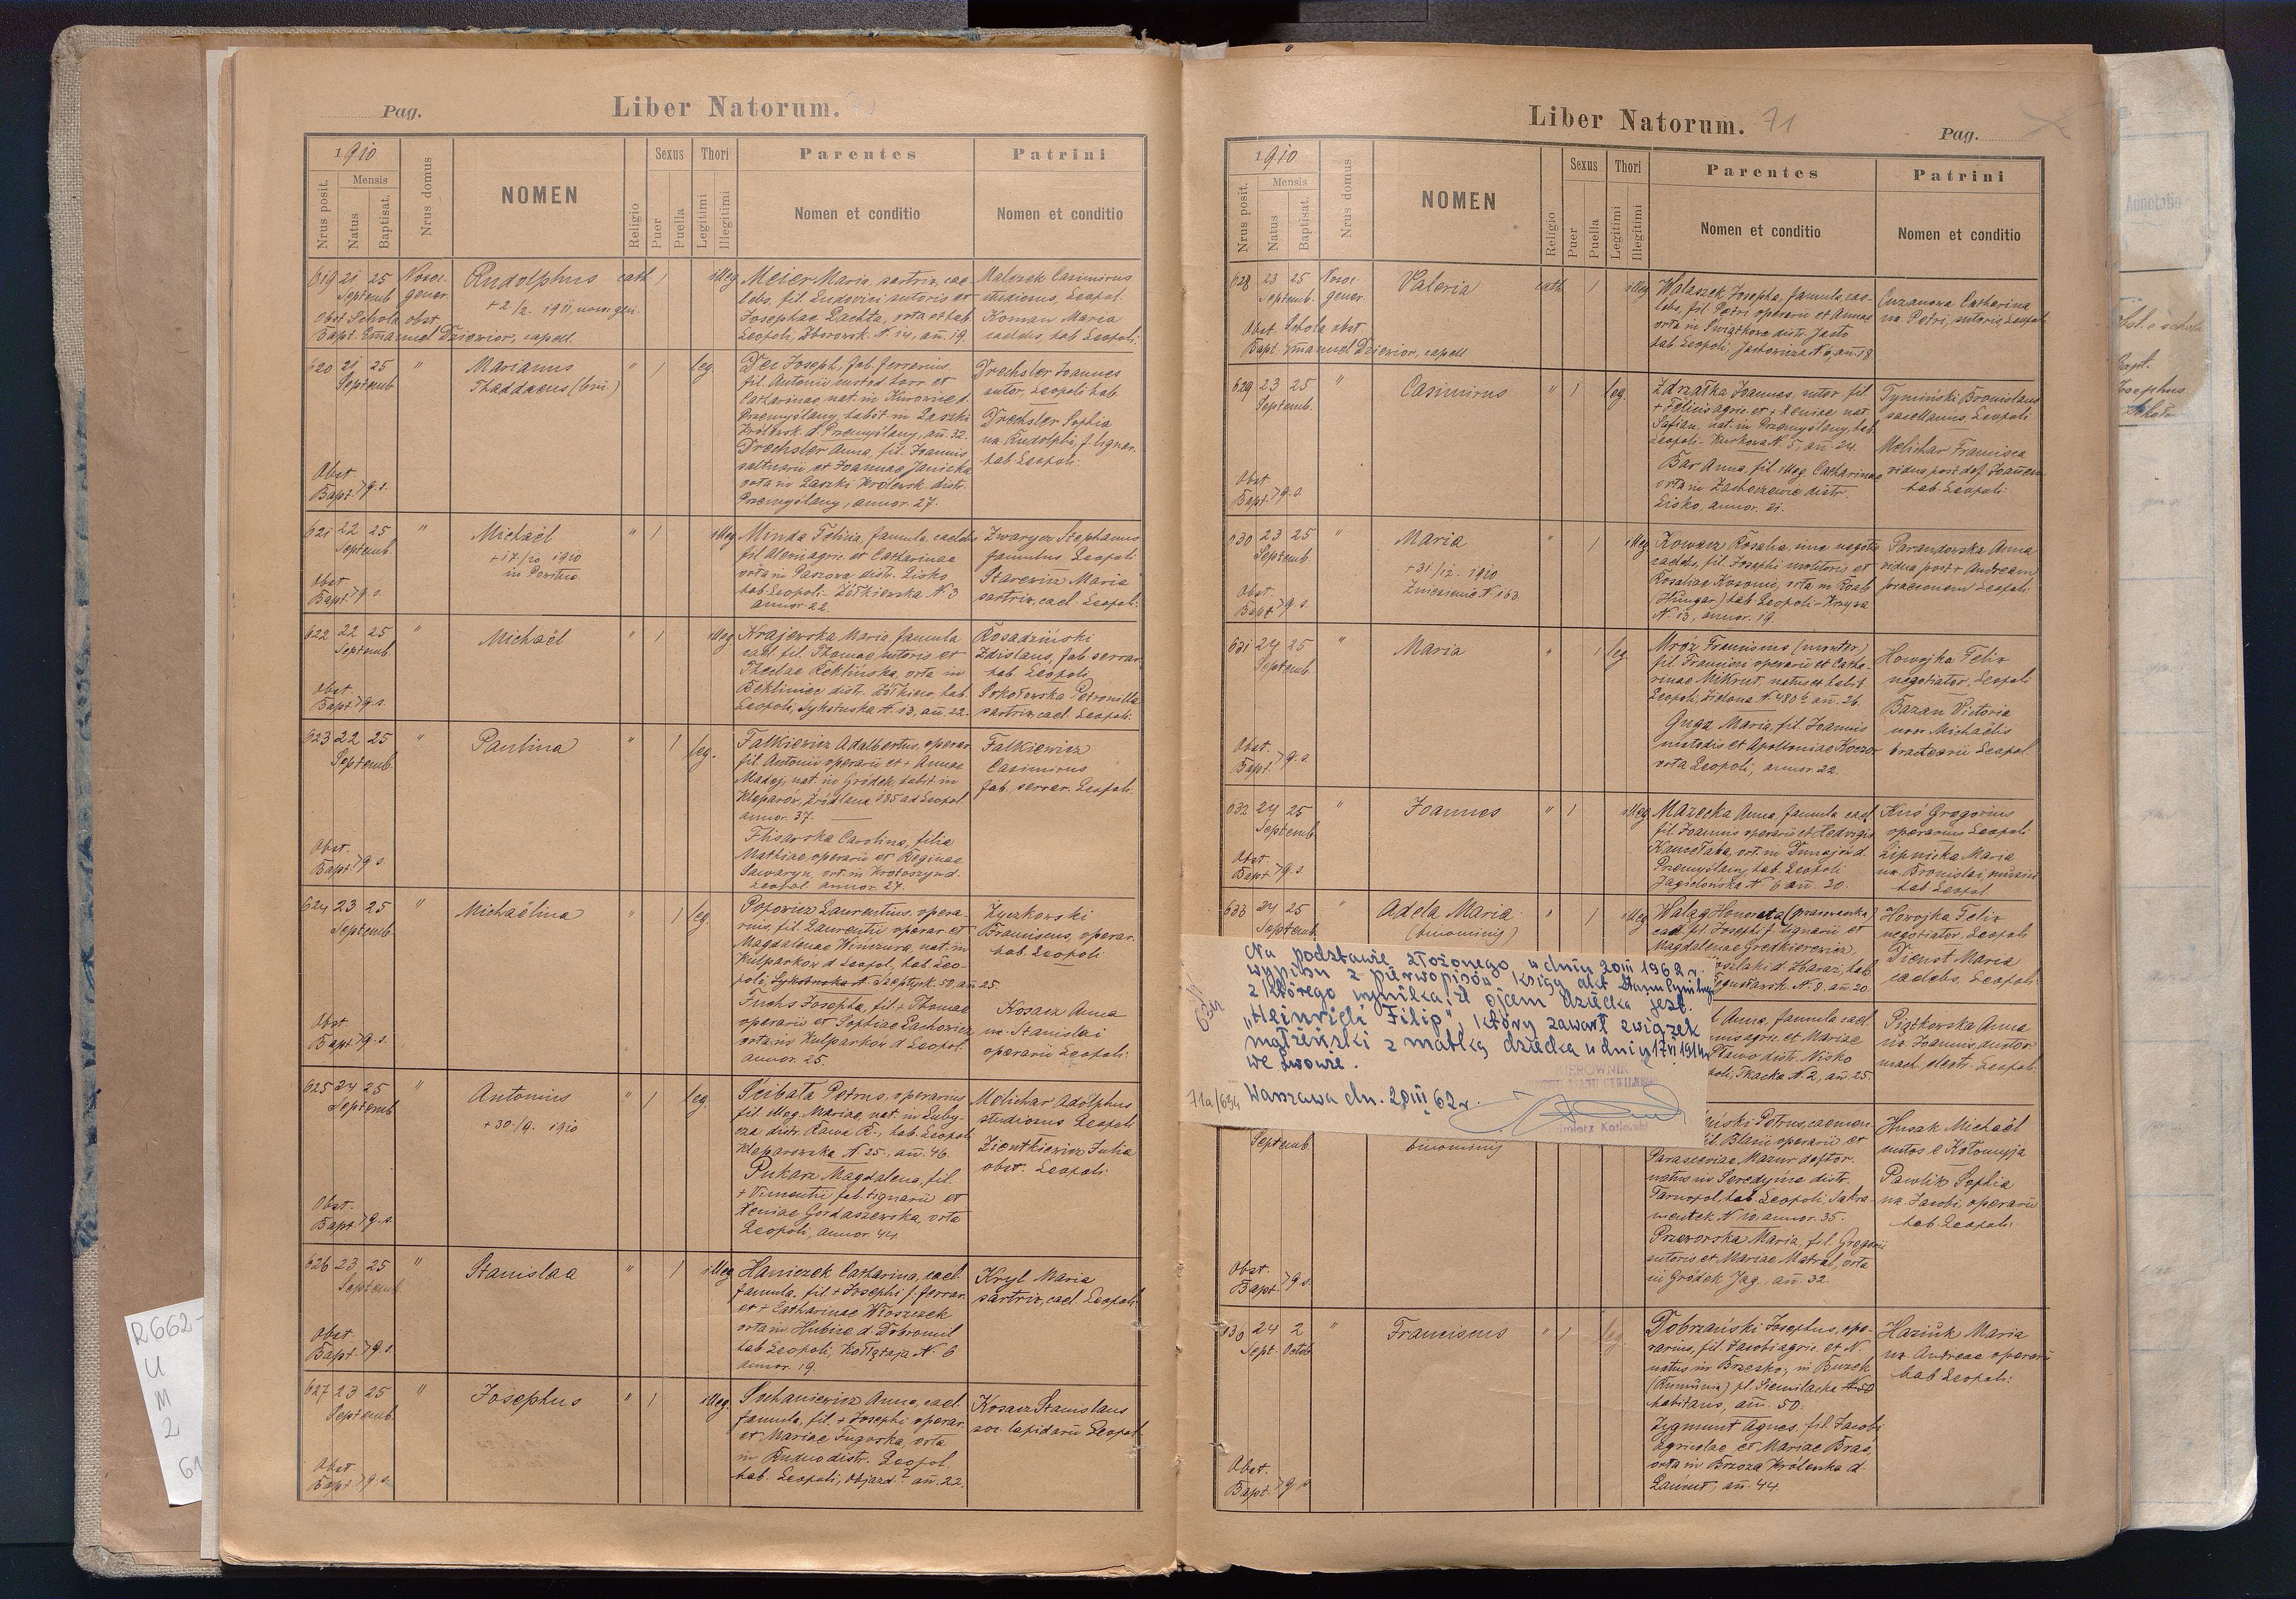 Pag.
Liber Natorum.
1910
Nrus posit.
Mensis
Natus
Baptisat.
Nrus domus
NOMEN
Religio
Sexus
Puer
Puella
Thori
Legitimi
Illegitimi
Parentes
Nomen et conditio
Patrini
Nomen et conditio
619 21 25 Nosoc. Rudolphus cath. 1 illeg.
Septemb. gener.
+ 2/2. 1911
Obst. Schola obst.
Bapt. Emanuel Dziewior, capell.
Meier Maria, sartrix, cae-
lebs, fil. Ludovici sutoris et
Josephae Lachta, orta et hab.
Leopoli, Zborowsk. N. 14, añ. 19.
Malczek Casimirus
studiosus, Leopol.
Koman Maria
caelebs, hab. Leopoli.
620 21 25 " Marianus " 1 leg.
Septemb. Thaddaeus (bin.)
Obst.
Bapt. > q. s.
Dec Joseph, fab. ferrarius,
fil. Antonii custod. horr. et
Catharinae nat. in Kurowice d.
Przemyślany, habit. in Laszki
Królewsk. d. Przemyślany, añ. 32.
Drechsler Anna, fil. Joannis
saltuarii et Joannae Janicka
orta in Laszki Królewsk. distr.
Przemyślany, annor. 27.
Drechsler Joannes
sutor, Leopoli hab.
Drechsler Sophia
ux. Rudolphi, f. lignar.
hab. Leopoli.
621 22 25 " Michaël " 1 illeg.
Septemb.
+ 17/10 1910
Obst.
Bapt. > q. s.
Minda Felicia, famula, caelebs
fil. Alexii agric. et Catharinae
orta in Paszowa distr. Lisko
hab. Leopoli - Żółkiewska N. 3
annor. 22.
Zwarycz Stephanus
famulus, Leopoli
Starewicz Maria
sartrix, cael. Leopoli.
622 22 25 " Michaël " 1 illeg.
Septemb.
Obst.
Bapt. > q. s.
Krajewska Maria, famula
cael. fil. Thomae sutoris et
Theclae Reklińska, orta in
distr. Żółkiew, hab.
Leopoli, Sykstuska N. 13, añ. 22.
Rosadziński
Zdislaus, fab. serrar.
hab. Leopoli
Sokołowska Petronilla
sartrix, cael. Leopoli.
623 22 25 " Paulina " 1 leg.
Septemb.
Obst.
Bapt. > q. s.
Falkiewicz Adalbertus, operar.
fil. Antonii operarii et + Annae
Madej, nat. in Gródek, habit. in
Kleparów, Źródlana 185 ad Leopol.
annor. 37.
Flisarska Carolina, filia
Mathiae, operarii et Reginae
Sawaryn, ort. in Krotoszyn d.
Leopol. annor. 27.
Falkiewicz
Casimirus
fab. serrar. Leopoli.
624 23 25 " Michaëlina " 1 leg.
Septemb.
Obst.
Bapt. > q. s.
Popowicz Laurentius, opera-
rius, fil. Laurentii operar. et
Magdalenae Winszura, nat. in
Kulparków d. Leopol., hab. Leo-
poli, Szeptyck. 50, añ. 25.
Fuchs Josepha, fil. + Thomae
operarii et Sophiae Lachowicz
orta in Kulparków d. Leopol.
annor. 25.
Życzkowski
Franciscus, operar.
hab. Leopoli
Kosarz Anna
ux. Stanislai
operarii Leopoli.
625 24 25 " Antonius " 1 leg.
Septemb.
+ 30/9. 1910
Obst.
Bapt. > q. s.
Scibała Petrus, operarius
fil. illeg. Mariae, nat. in Luby-
cza distr. Rawa R., hab. Leopoli
Kleparowska N. 25, añ. 46.
Pukarz Magdalena, fil.
fab. lignarii et
Xeniae Gordaszewska, orta
Leopoli, annor. 44.
Melichar Adolphus
studiosus Leopoli
Zientkiewicz Julia
obst. Leopoli.
626 23 25 " Stanislaa " 1 illeg.
Septemb.
Obst.
Bapt. > q. s.
Haniczek Catharina, cael.
famula, fil. + Josephi f. ferrar.
et + Catharinae Włoszczek
orta in Hubice d. Dobromil
hab. Leopoli, Kołłątaja N. 6
annor. 19.
Kryl Maria
sartrix, cael. Leopoli.
627 23 25 " Josephus " 1 illeg.
Septemb.
Obst.
Bapt. > q. s.
Suchaniewicz Anna, cael.
famula, fil. + Josephi operar.
et Mariae orta
in Rudno distr. Leopol.
hab. Leopoli, Objazd. 2 añ. 22.
Kosarz Stanislaus
soc. lapidarii Leopol.
Liber Natorum. 71
Pag.
1910
Nrus posit.
Mensis
Natus
Baptisat.
Nrus domus
NOMEN
Religio
Sexus
Puer
Puella
Thori
Legitimi
Illegitimi
Parentes
Nomen et conditio
Patrini
Nomen et conditio
628 23 25 Nosoc. Valeria cath. 1 illeg.
Septemb. gener.
Obst. Schola obst.
Bapt. Emanuel Dziewior, capell.
Walaszek Josepha, famula, cae-
lebs, fil. Petri operarii et Annae
orta in Świątkowa distr. Jasło
hab. Leopoli, Jachowicza N. 6, añ. 18
Catharina
ux. Petri, sutoris, Leopoli
629 23 25 " Casimirus " 1 leg.
Septemb.
Obst.
Bapt. > q. s.
Zdrzałka Joannes, sutor, fil.
+ Felicis agric. et + Xeniae nat.
Safian, nat. in Przemyślany, hab.
Leopoli - Kurkowa N. 5, añ. 24.
Bar Anna, fil. illeg. Catharinae
orta in Zachoczewie distr.
Lisko, annor. 21.
Tymiński Bronislaus
sacellanus, Leopoli
Melichar Francisca
vidua post def. Joannem
hab. Leopoli.
630 23 25 " Maria " 1 illeg.
Septemb.
+ 31/12. 1910
Zniesienie N. 163.
Obst.
Bapt. > q. s.
Kowacz Rosalia, sine negotio
caelebs, fil. Josephi molitoris et
Rosaliae Kosonic, orta in
(Hungar.) hab. Leopoli - Krzywa
N. 13, annor. 19.
Parandowska Anna
vidua post + Andream
praeconem Leopoli.
631 24 25 " Maria " 1 leg.
Septemb.
Obst.
Bapt. > q. s.
Mróz Franciscus (monter)
fil. Francisci operarii et Catha-
rinae Mikrut, natus et habit.
Leopoli, Zielona N. 480 b. añ. 26.
Guga Maria, fil. Joannis
custodis et Apolloniae
orta Leopoli, annor. 22.
Howojka Felix
negotiator, Leopoli
Bazan Victoria
uxor Michaëlis
Leopol.
632 24 25 " Joannes " 1 illeg.
Septemb.
Obst.
Bapt. > q. s.
Mazecka Anna, famula cael.
fil. Joannis operarii et Hedvigis
ort. in Dunajów d.
Przemyślany, hab. Leopoli
Jagielońska N. 6 añ. 20.
Kuś Gregorius
operarius Leopoli
Lipnicka Maria
ux. Bronislai, musici
hab. Leopol.
633 24 25 " Adela Maria " 1 illeg.
Septemb. (binominis)
Waląg Honorata (prasowaczka)
cael. fil. Josephi f. lignarii et
Magdalenae Gredkierewicz
d. Zbaraż, hab.
N. 8, añ. 20.
Howojka Felix
negotiator Leopoli
Dienst Maria
caelebs, Leopoli.
634
Na podstawie złożonego w dniu 20 III 1962 r.
wypisu z pierwopisów księgi akt stanu cywilnego
z którego wynika, iż ojcem dziecka jest
„Heinrich Filip", który zawarł związek
małżeński z matką dziecka w dniu 17 VI 1914 r.
we Lwowie.
Warszawa dn. 20 III 62 r.
KIEROWNIK
71a/634
Anna, famula cael.
agric. et Mariae
distr. Nisko
Tkacka N. 2, añ. 25.
Piątkowska Anna
ux. Joannis, ductor.
mach. electr. Leopoli.
Septemb.
binominis
Petrus, caemen.
fil. Blasii operarii et
Parasceviae Mazur
natus in Seredynce distr.
Tarnopol, hab. Leopoli, Sakra-
mentek N. 10, annor. 35.
Przeworska Maria, fil. Gregorii
sutoris et Mariae Matral, orta
in Gródek Jag., añ. 32.
Husak Michaël
sutor e Kołomyja
Pawlik Sophia
ux. Jacobi, operarii
hab. Leopoli.
Obst.
Bapt. > q. s.
636 24 2 " Franciscus " 1 leg.
Sept. Octob.
Obst.
Bapt. > q. s.
Dobrzański Josephus, ope-
rarius, fil. Jacobi agric. et N.
natus in Brzesko, in Buzek
(Rumunia) pl. Siemilacka N. 50
habitans, añ. 50.
Zygmunt Agnes, fil. Jacobi
agricolae et Mariae Braś,
orta in Brzoza Królewka d.
Łańcut, añ. 44.
Haziuk Maria
ux. Andreae operarii
hab. Leopoli.
R662-
U
M
2
61
Adnotatio